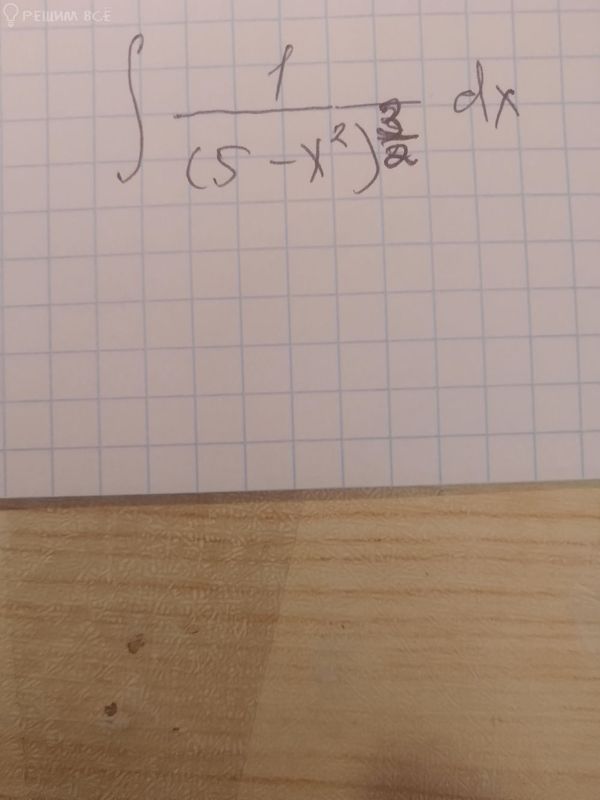 РЕШИМ ВСЁ
∫ 1/(5 - x²)^(3/2) dx